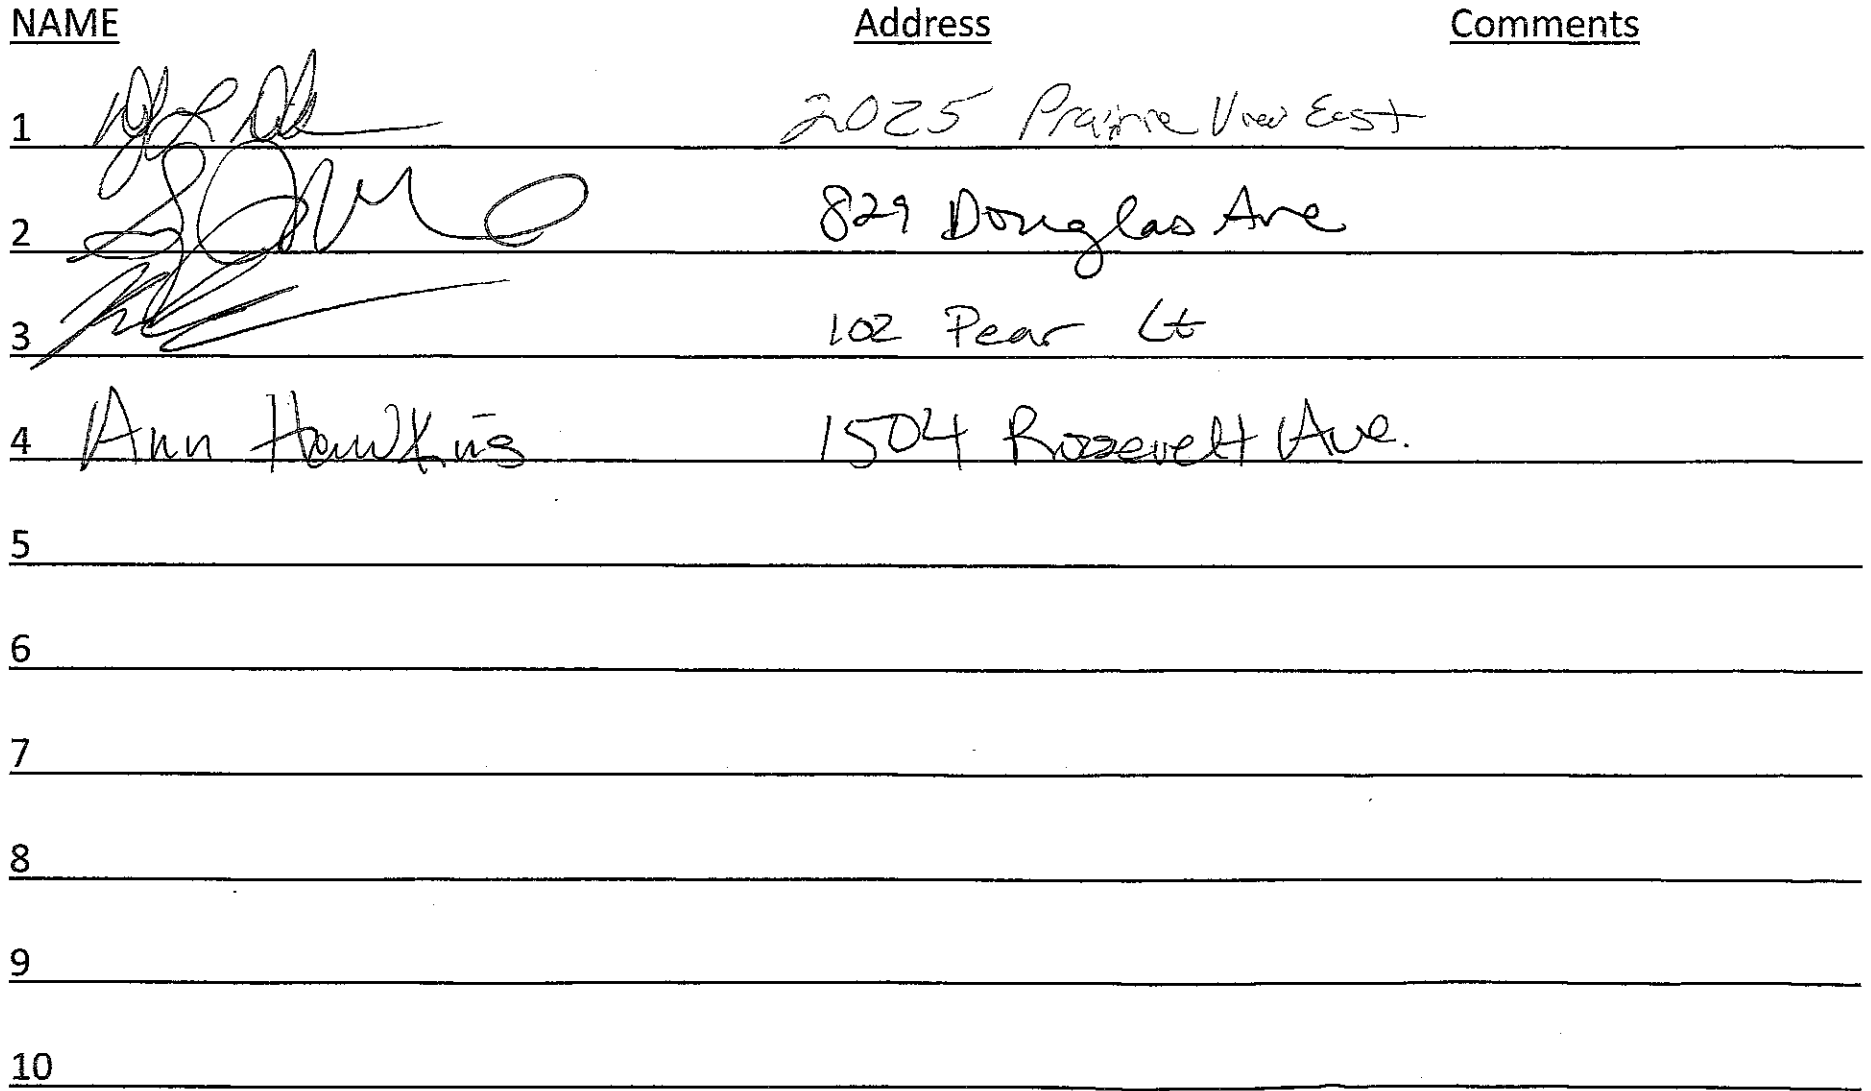 NAME Address Comments
1 2025 Prairie View East
2 829 Douglas Ave
3 102 Pear Ct
4 Ann Hawkins 1504 Roosevelt Ave.
5
6
7
8
9
10